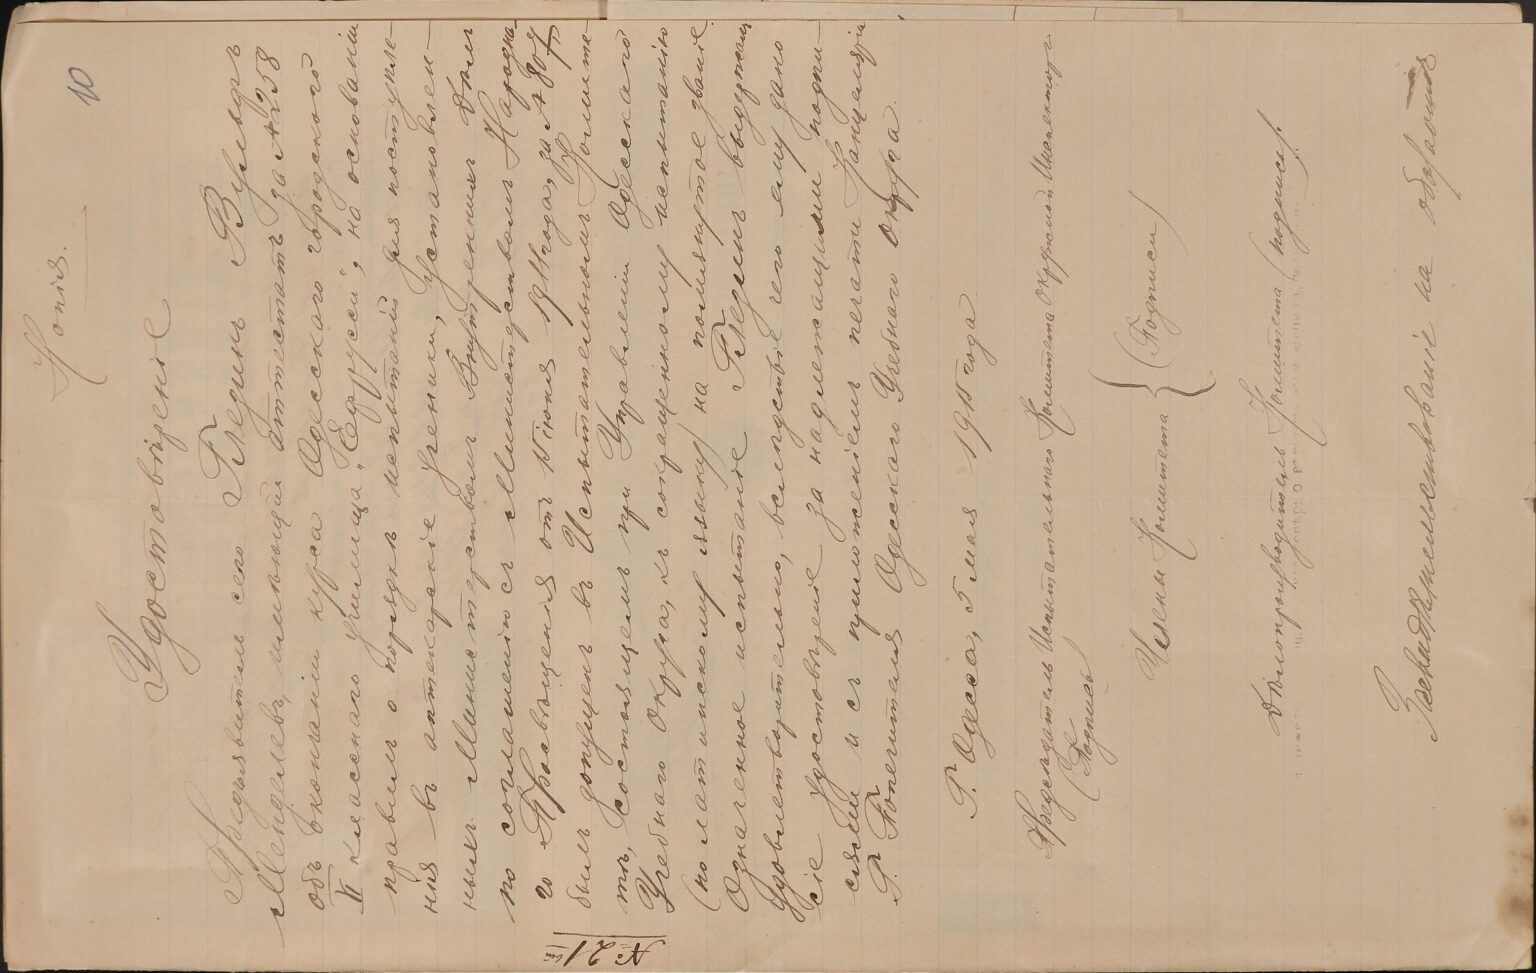 10
Копія.
Удостовѣреніе
Предъявитель сего Глединъ Вульфъ
Менделевъ, имѣющій аттестатъ за № 258
объ окончаніи курса Одесскаго городского
VI класснаго училища „Ефрусси", на основаніи
правилъ о порядкѣ испытаній для поступле-
нія въ аптекарскіе ученики, установлен-
ныхъ Министерствомъ Внутреннихъ Дѣлъ
по соглашенію съ Министерствомъ Народна-
го Просвѣщенія отъ 15 іюня 1911 года, за № 807
былъ допущенъ въ Испытательномъ Комите-
тѣ, состоящемъ при Управленіи Одесскаго
Учебнаго Округа, къ сокращенному испытанію
(по латинскому языку) на помянутое званіе.
Означенное испытаніе Гледин выдержалъ
удовлетворительно, вслѣдствіе чего ему дано
сіе удостовѣреніе за надлежащими подпи-
сями и съ приложеніемъ печати Канцеляріи
Г. Попечителя Одесскаго Учебнаго округа.
№ 21
Г. Одесса, 5 мая 1915 года
Предсѣдатель Испытательного Комитета Окружной Инспекторъ
(Подпись)
Члены Комитета { (Подписи)
Дѣлопроизводитель Комитета (подпись).
Засвидѣтельствованіе на оборотѣ